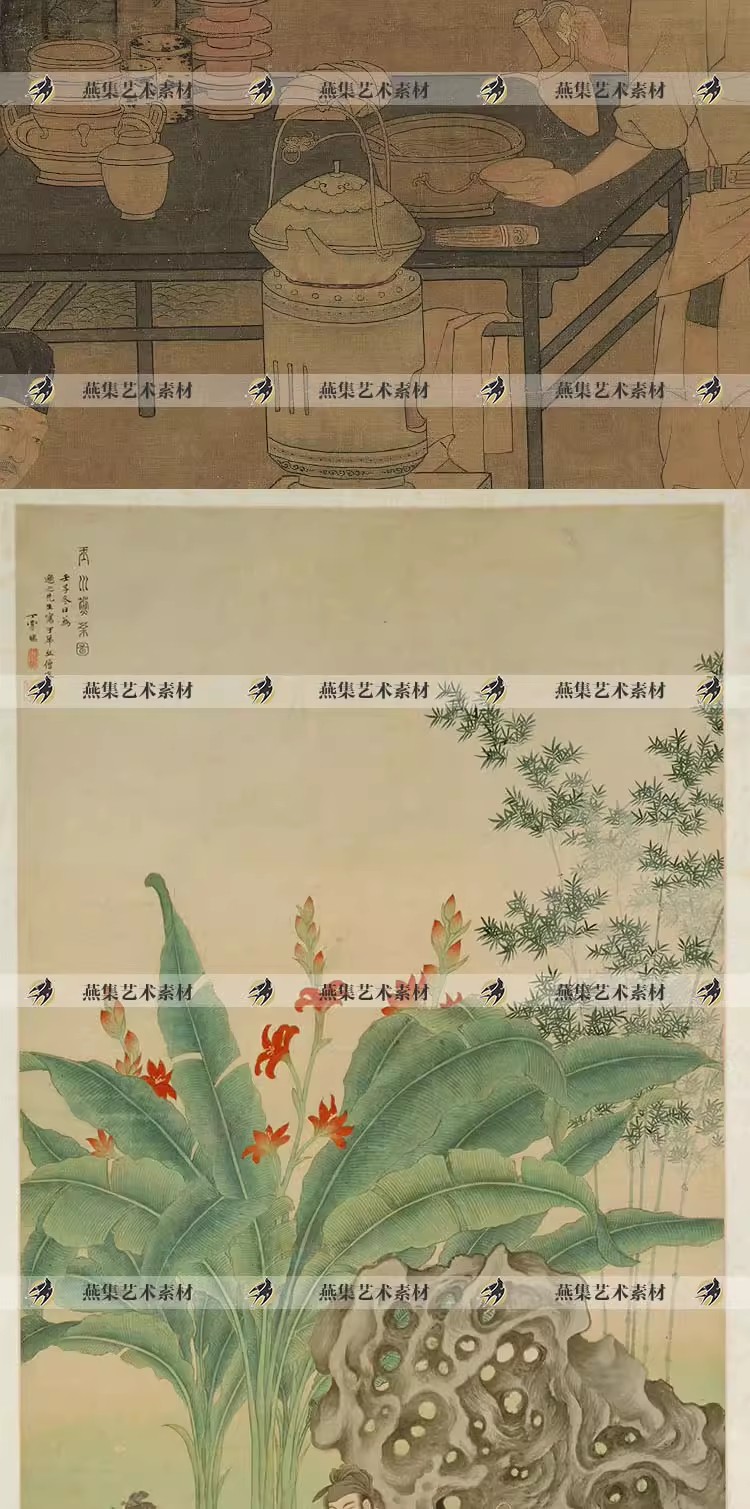 燕集艺术素材 燕集艺术素材 燕集艺术素材
燕集艺术素材 燕集艺术素材 燕集艺术素材
玉川 茶圖
壬子冬日為
先生寫于虎丘僧
丁雲鵬
燕集艺术素材 燕集艺术素材 燕集艺术素材
燕集艺术素材 燕集艺术素材 燕集艺术素材
燕集艺术素材 燕集艺术素材 燕集艺术素材